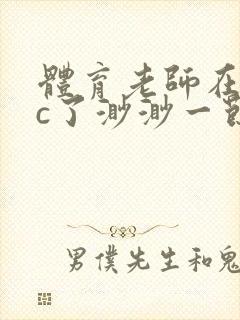 體育老師在
c了渺渺一
男僕先生和鬼